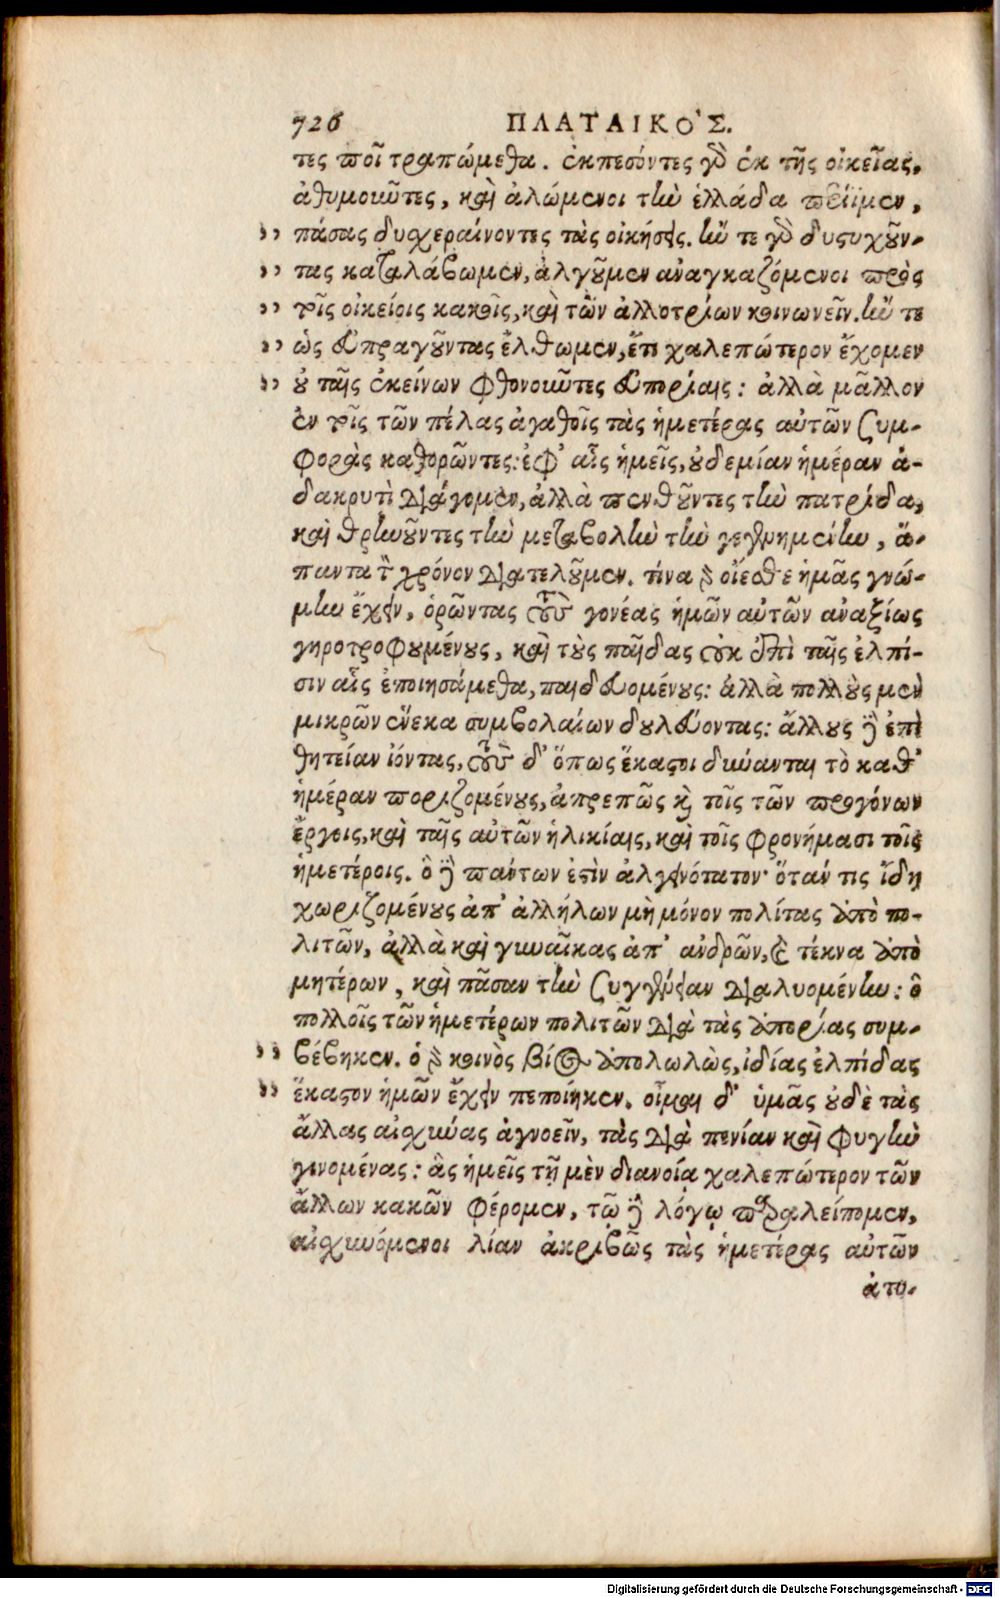 726 ΠΛΑΤΑΙΚΟ'Σ.
τες ποῖ τραπώμεθα. ἐκπεσόντες γὸ ἐκ τῆς οἰκείας,
ἀθυμοιῶτες, καὶ ἀλώμενοι τὴν ἑλλάδα περίϊμεν,
›› πάσας δυχεραίνοντες τὰς οἰκήσεις. ἤν τε γὸ δυςυχοῦν-
›› τας καταλάβωμεν, ἀλγοῦμεν ἀναγκαζόμενοι πρὸς
›› τοῖς οἰκείοις κακοῖς, καὶ τῶν ἀλλοτρίων κοινωνεῖν. ἤν τε
›› ὡς εὐπραγοῦντας ἔλθωμεν, ἔτι χαλεπώτερον ἔχομεν
›› οὐ ταῖς ἐκείνων φθονοιῶτες εὐπορίαις: ἀλλὰ μᾶλλον
ἐν τοῖς τῶν πέλας ἀγαθοῖς τὰς ἡμετέρας αὐτῶν συμ-
φορὰς καθορῶντες: ἐφ' αἷς ἡμεῖς, οὐδεμίαν ἡμέραν ἀ-
δακρυτὶ διάγομεν, ἀλλὰ πενθοῦντες τὴν πατρίδα,
καὶ θρηνοῦντες τὴν μεταβολὴν τὴν γεγενημένην, ἅ-
παντα τὸν χρόνον διατελοῦμεν. τίνα δὲ οἴεσθε ἡμᾶς γνώ-
μην ἔχειν, ὁρῶντας τοὺς γονέας ἡμῶν αὐτῶν ἀναξίως
γηροτροφουμένους, καὶ τοὺς παῖδας οὐκ ἐπὶ ταῖς ἐλπί-
σιν αἷς ἐποιησάμεθα, παιδευομένους: ἀλλὰ πολλοὺς μὲν
μικρῶν ἕνεκα συμβολαίων δουλεύοντας: ἄλλους δὲ ἐπὶ
θητείαν ἰόντας, τοὺς δ' ὅπως ἕκαςοι δύνανται τὸ καθ'
ἡμέραν ποριζομένους, ἀπρεπῶς καὶ τοῖς τῶν προγόνων
ἔργοις, καὶ ταῖς αὐτῶν ἡλικίαις, καὶ τοῖς φρονήμασι τοῖς
ἡμετέροις. ὃ δὲ πάντων ἐςὶν ἀλγεινότατον· ὅταν τις ἴδῃ
χωριζομένους ἀπ' ἀλλήλων μὴ μόνον πολίτας ἀπὸ πο-
λιτῶν, ἀλλὰ καὶ γυναῖκας ἀπ' ἀνδρῶν, καὶ τέκνα ἀπὸ
μητέρων, καὶ πᾶσαν τὴν συγγένειαν διαλυομένην: ὃ
πολλοῖς τῶν ἡμετέρων πολιτῶν διὰ τὰς ἀπορίας συμ-
›› βέβηκεν. ὁ δὲ κοινὸς βίος ἀπολωλὼς, ἰδίας ἐλπίδας
›› ἕκαςον ἡμῶν ἔχειν πεποίηκεν. οἶμαι δ' ὑμᾶς οὐδὲ τὰς
ἄλλας αἰσχύνας ἀγνοεῖν, τὰς διὰ πενίαν καὶ φυγὴν
γινομένας: ἃς ἡμεῖς τῇ μὲν διανοίᾳ χαλεπώτερον τῶν
ἄλλων κακῶν φέρομεν, τῷ δὲ λόγῳ παραλείπομεν,
αἰσχυνόμενοι λίαν ἀκριβῶς τὰς ἡμετέρας αὐτῶν
ἀπο-
Digitalisierung gefördert durch die Deutsche Forschungsgemeinschaft - DFG